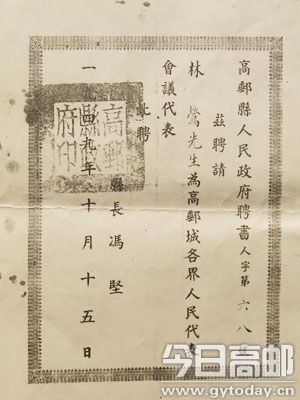 高郵縣人民政府聘書人字第六八號
茲聘請
林鶯先生為高郵城各界人民代表
會議代表
此聘
縣長馮堅
一九四九年十月十五日
高郵縣府印
今日高邮
www.gytoday.cn